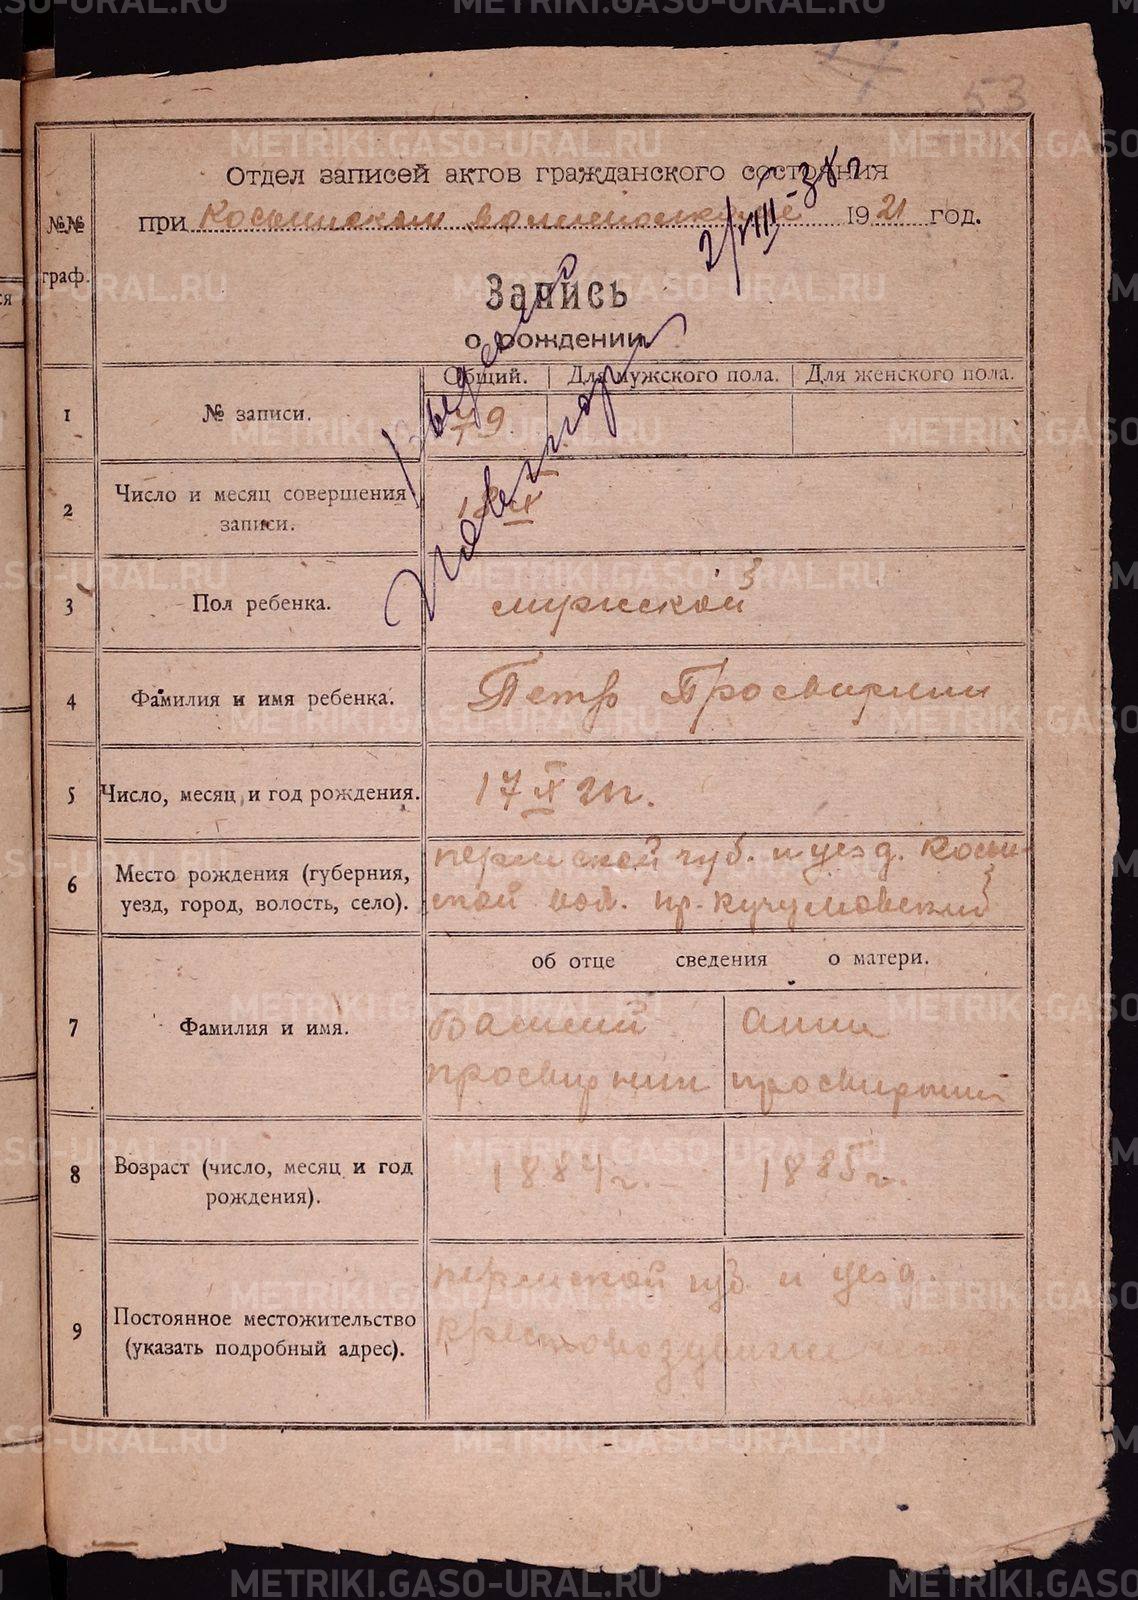 53
Отдел записей актов гражданского состояния
при Косьинском волисполкоме 1921 год.
2/VIII-38 г
№№ граф.
Запись
о рождении
Выдана
Общий. Для мужского пола. Для женского пола.
1 № записи. 79.
2 Число и месяц совершения записи. 18 X
3 Пол ребенка. мужской
4 Фамилия и имя ребенка. Петр Просвирнин
5 Число, месяц и год рождения. 17 X 21 г.
6 Место рождения (губерния, уезд, город, волость, село). пермской губ. и уезд. Косьин-
ской вол. пр. Кучумовский
об отце сведения о матери.
7 Фамилия и имя. Василий Анна
просвирнин просвирнин
8 Возраст (число, месяц и год рождения). 1884 г. 1885 г.
9 Постоянное местожительство (указать подробный адрес). пермской губ. и уезд.
Крестовоздвижен
METRIKI.GASO-URAL.RU